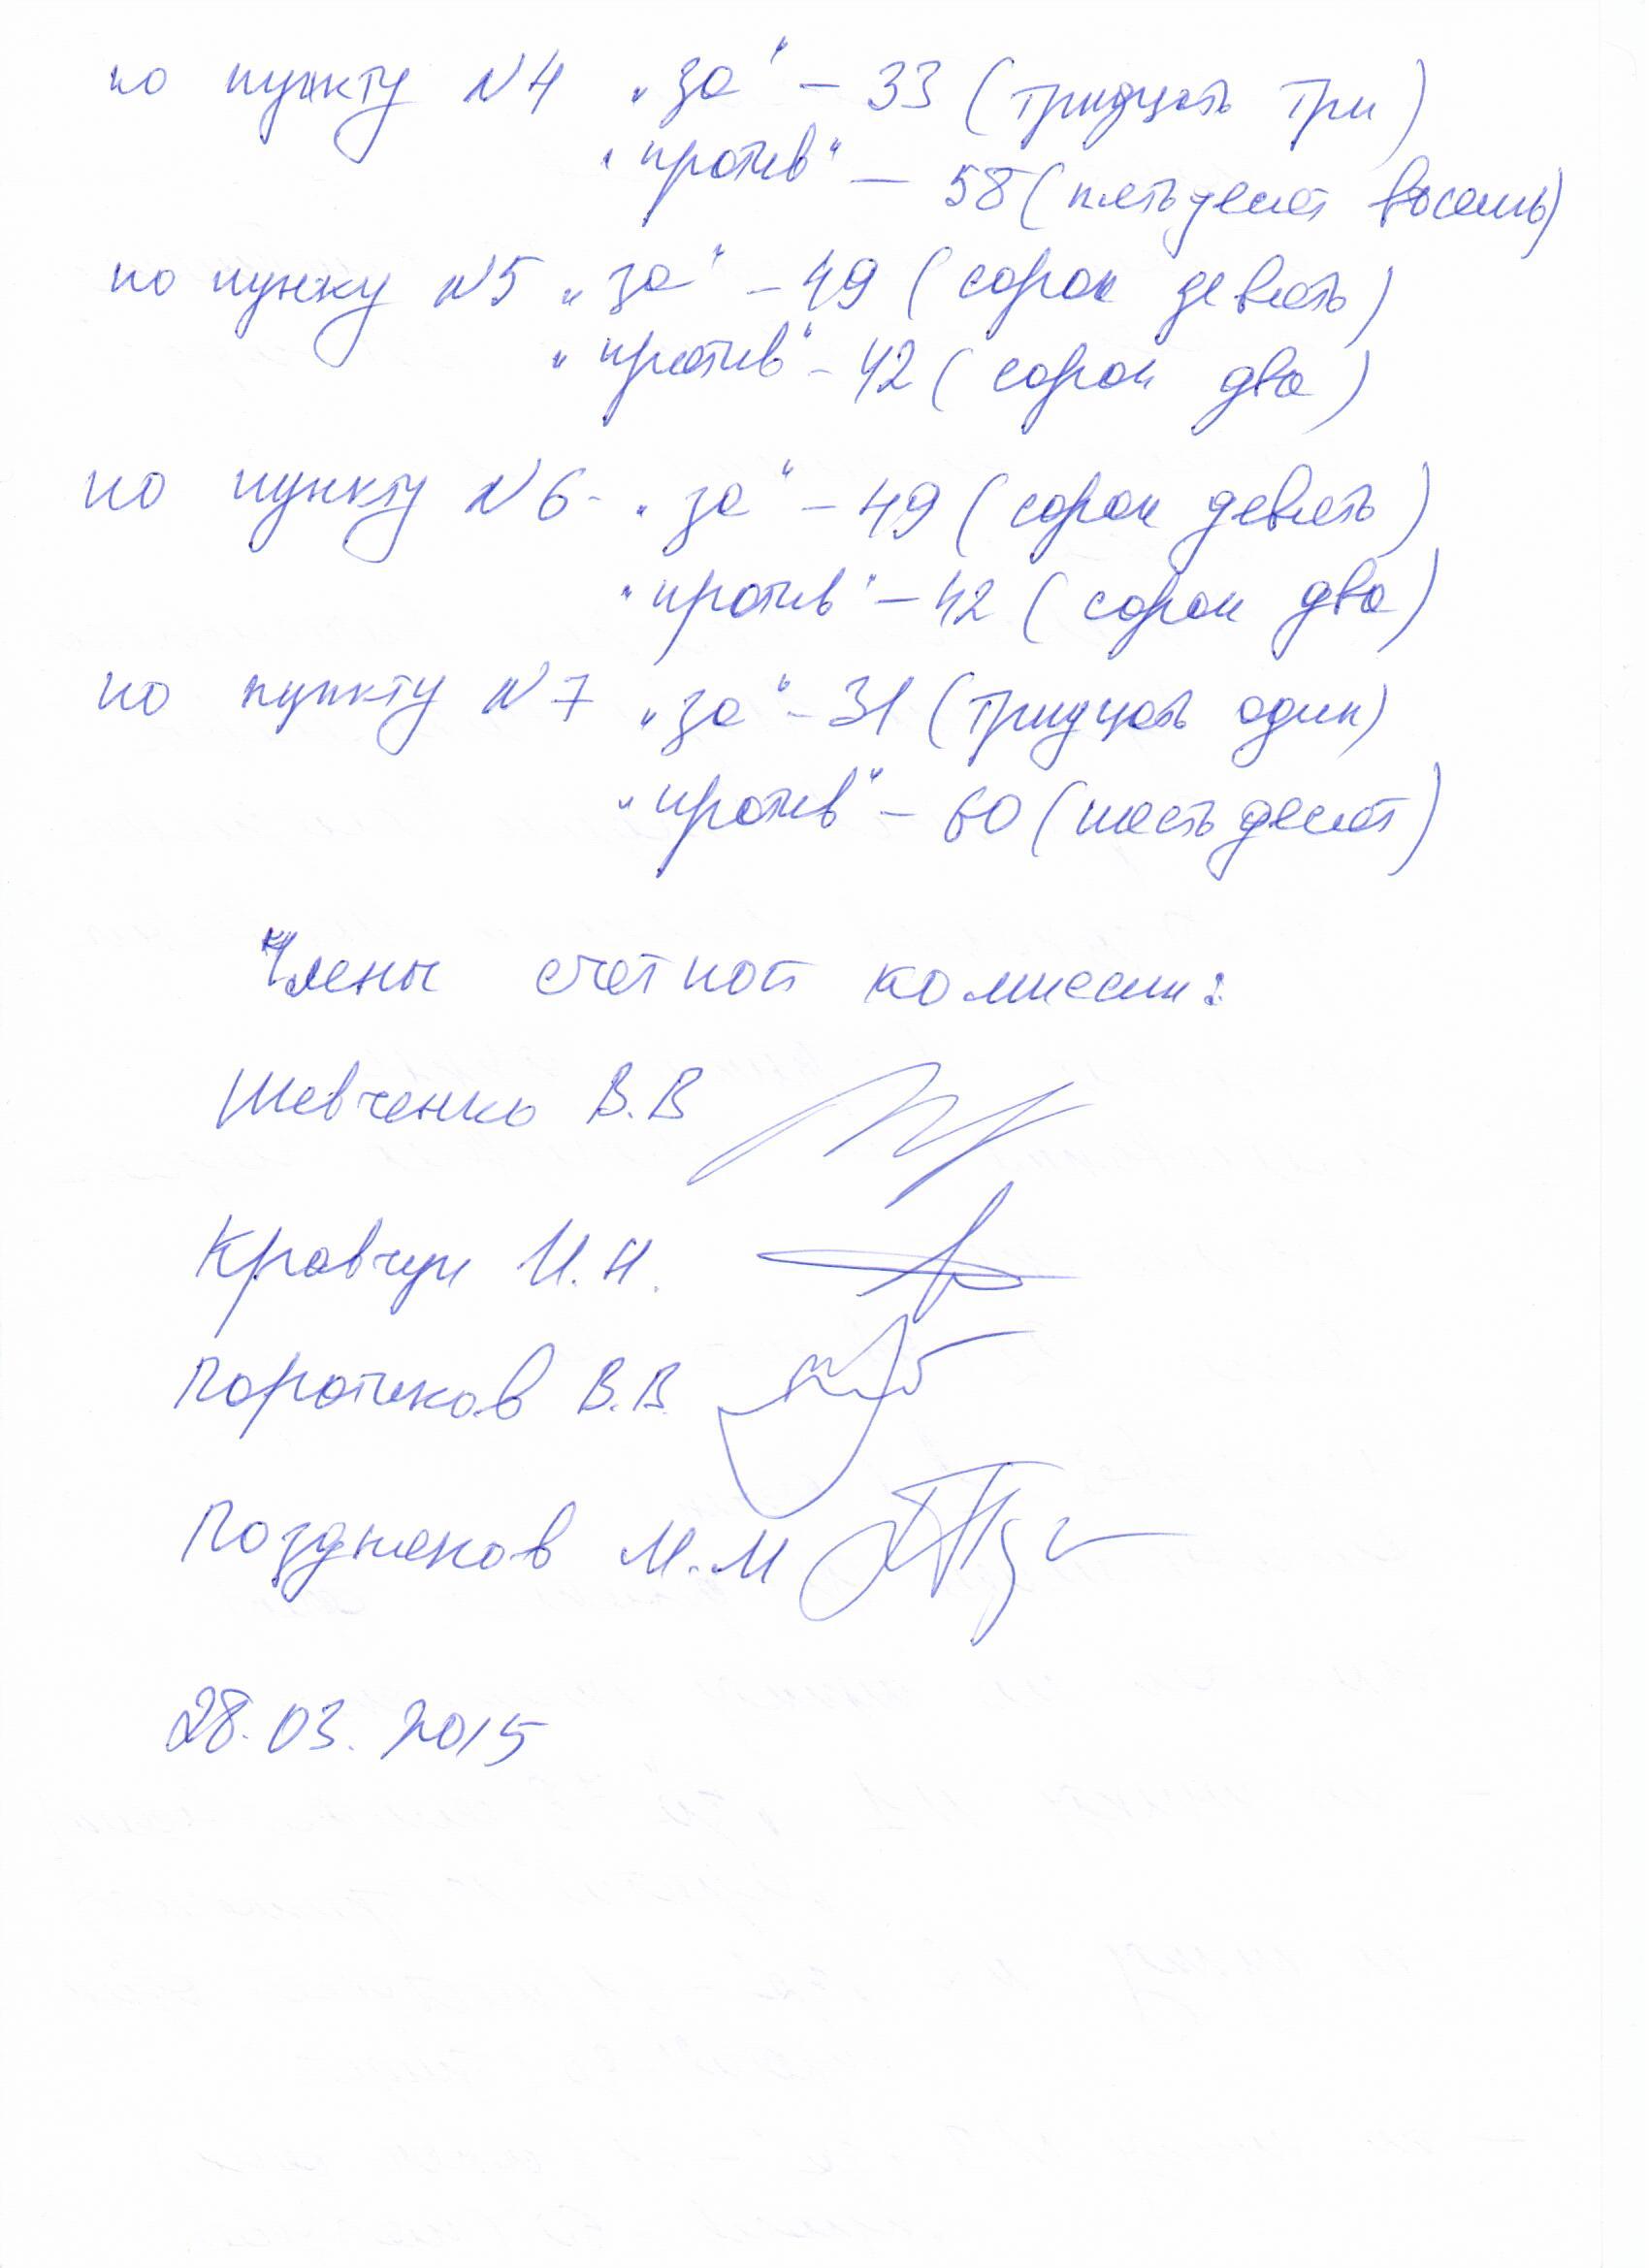 по пункту N4 „за“ – 33 (тридцать три)
„против“ – 58 (пятьдесят восемь)
по пунку N5 „за“ – 49 (сорок девять)
„против“ – 42 (сорок два)
по пункту N6 - „за“ – 49 (сорок девять)
„против“ – 42 (сорок два)
по пункту N7 „за“ – 31 (тридцать один)
„против“ – 60 (шестьдесят)
Члены счетной комиссии:
Шевченко В.В
Кравчук И.Н.
Поротиков В.В.
Поздняков М.М
28.03.2015